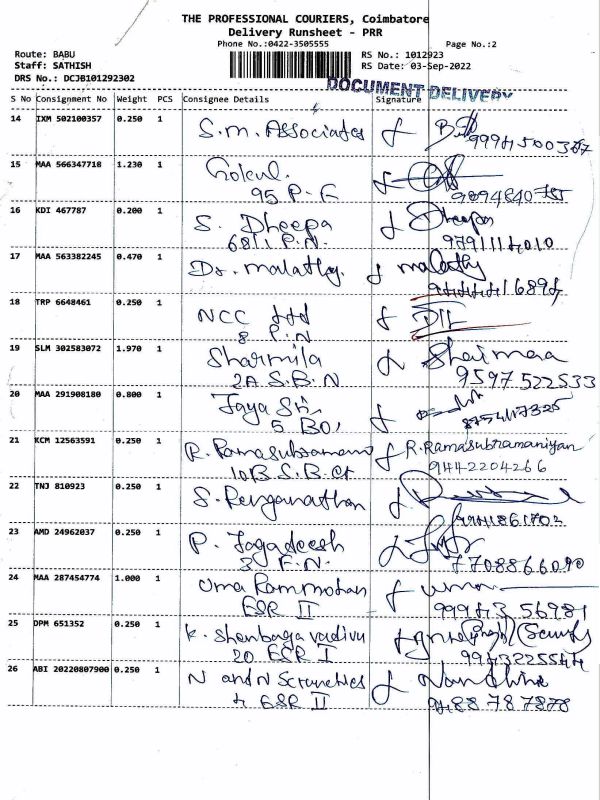 THE PROFESSIONAL COURIERS, Coimbatore
Delivery Runsheet - PRR
Phone No.:0422-3505555 Page No.:2
Route: BABU RS No.: 1012923
Staff: SATHISH RS Date: 03-Sep-2022
DRS No.: DCJB101292302 DOCUMENT DELIVERY
S No Consignment No Weight PCS Consignee Details Signature
14 IXM 502100357 0.250 1 S.M. Associates
15 MAA 566347718 1.230 1 Gokul.
95 P-F
16 KDI 467787 0.200 1 S. Dheepa Dheepa
P.N. 9791114010
17 MAA 563382245 0.470 1 Dr. Malathy. Malathy
18 TRP 6648461 0.250 1 NCC Ltd
8 P.N
19 SLM 302583072 1.970 1 Sharmila
2A S.B.N 9597522533
20 MAA 291908180 0.800 1 Jaya Sri
21 KCM 12563591 0.250 1 R. Ramasubramani R.Ramasubramaniyan
10B S.B.Ct 9442204266
22 TNJ 810923 0.250 1 S. Renganathan
23 AMD 24962037 0.250 1 P. Jagadeesh
3 F.N. 7708866090
24 MAA 287454774 1.000 1 Uma Rammohan Uma
ESR II 9994356981
25 DPM 651352 0.250 1 K. Shenbaga vadivu
20 ESR I 9943225544
26 ABI 20220807900 0.250 1 N and N Scrunchies Nandhine
4 ESR II 9488787878